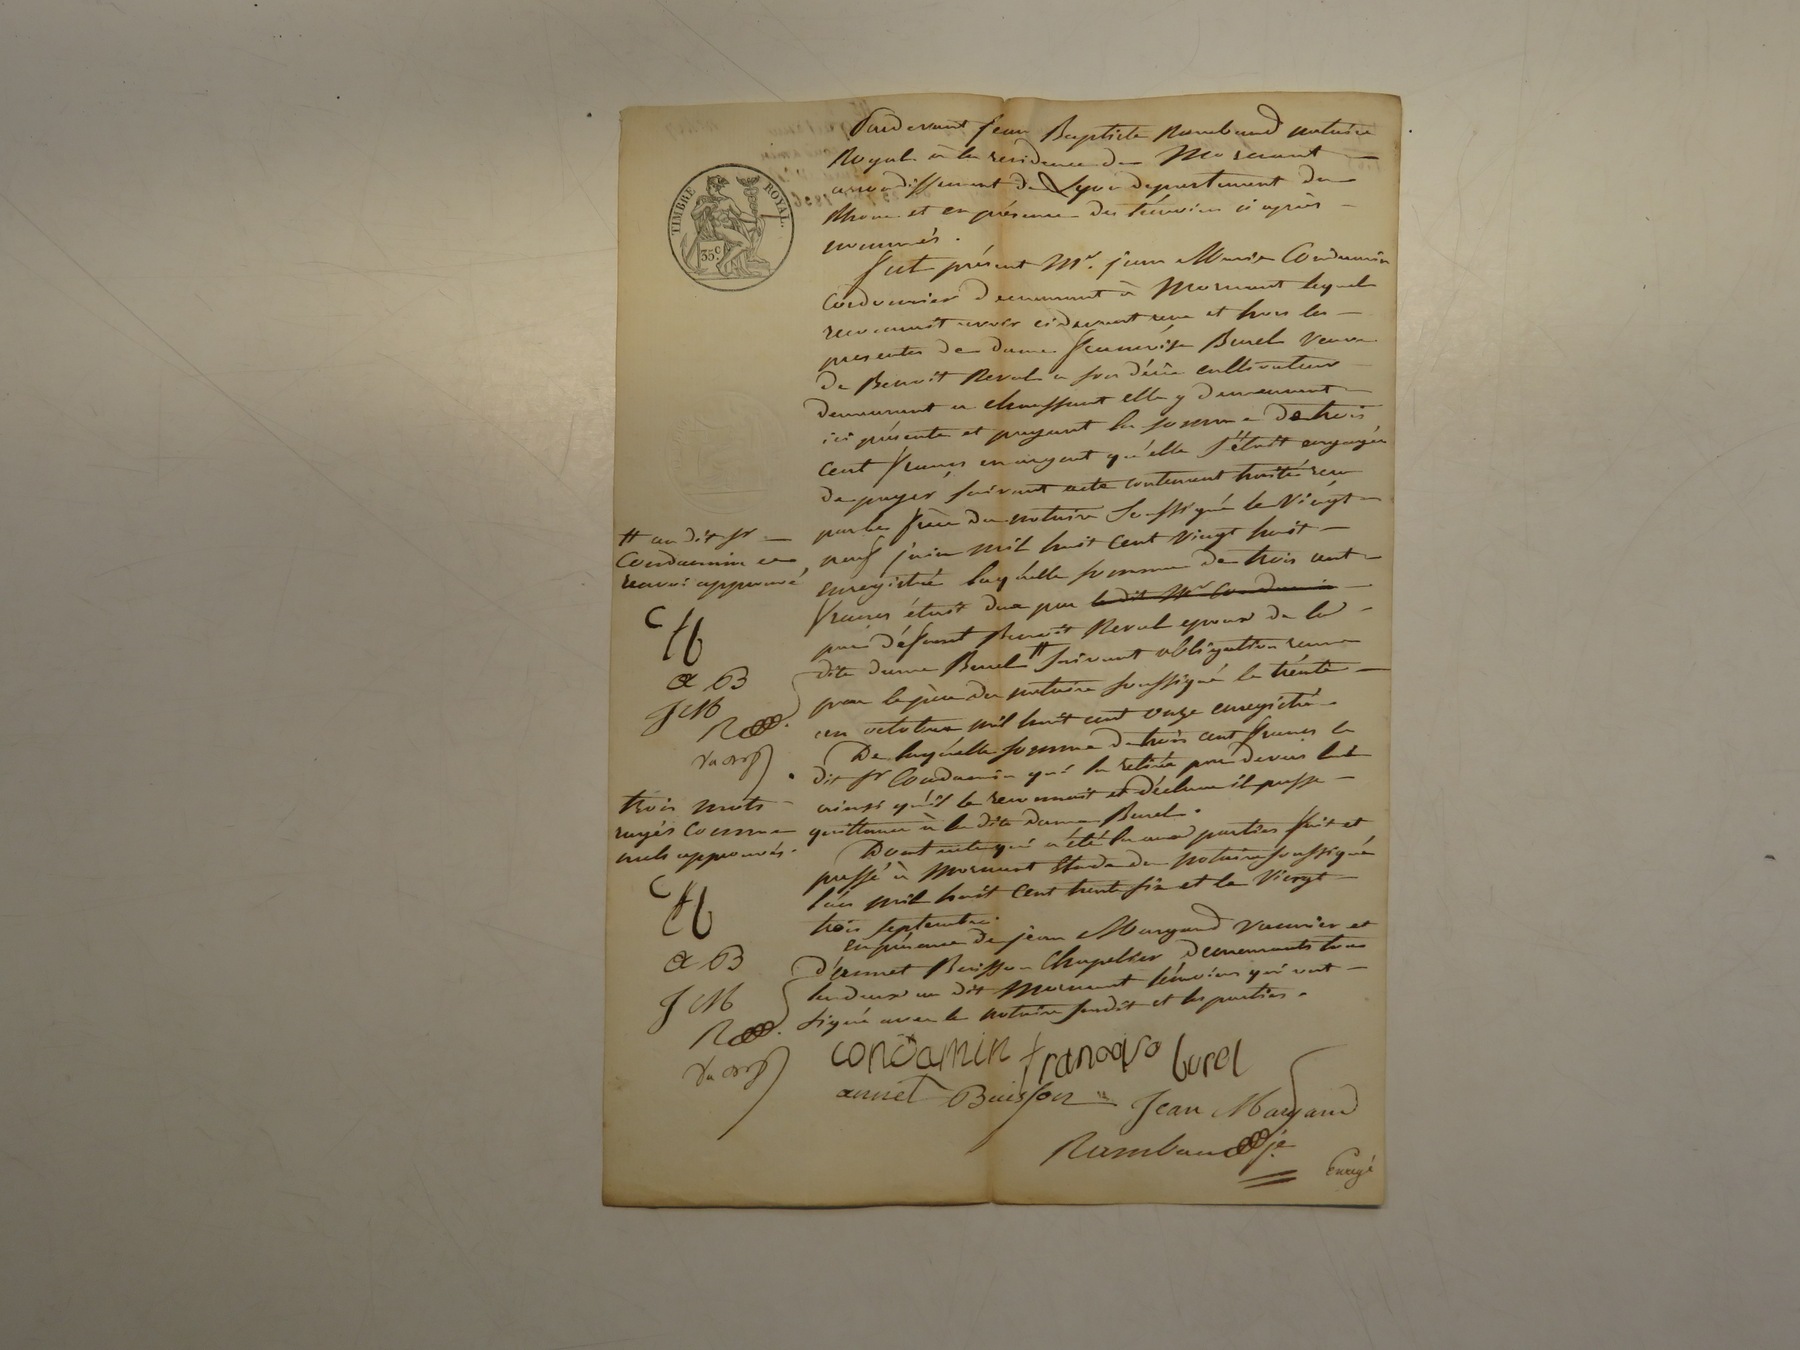 TIMBRE ROYAL.
35c
Pardevant Jean Baptiste Rambaud notaire
Royal à la residence de Mornant
arrondissement de Lyon departement du
Rhone et en présence des témoins ci après
nommés.
fut présent Mr. jean Marie Condamin
Cordonnier demeurant à Mornant lequel
reconnait avoir ci devant recu et hors les
presentes de dame Francoise Burel veuve
de Benoit Reval a son décès cultivateur
demeurant a chaussant elle y demeurant
ici présente et payant la somme de trois
cent francs en argent qu'elle s'étoit engagée
de payer suivant acte contenant traité recu
par les frère du notaire soussigné le vingt
neuf juin mil huit cent vingt huit
enregistré laquelle somme de trois cent
francs étoit due par le dit Mr Condamin
par défunt Benoit Reval epoux de la
dite dame Burel # suivant obligation recue
par le père du notaire soussigné le trente
un octobre mil huit cent onze enregistré
De laquelle somme de trois cent francs le
dit Sr Condamin qui la retirée par devers lui
ainsi qu'il le reconnait et déclare il passe
quittance à la dite dame Burel.
Dont acte qui a été lu aux parties fait et
passé à Mornant Etude du notaire soussigné
l'an mil huit cent trente six et le vingt
trois septembre
en présence de jean Margand vannier et
d'annet Buisson Chapelier demeurants tous
les deux au dit Mornant témoins qui ont
signé avec le notaire susdit et les parties.
# au dit Sr
Condamin ce
renvoi approuvé
C
fb
a B
J M
R
trois mots
rayés comme
nuls approuvés.
C
fb
a B
J M
R
condamin francoise burel
annet Buisson Jean Margand
Rambaud je
Enregé